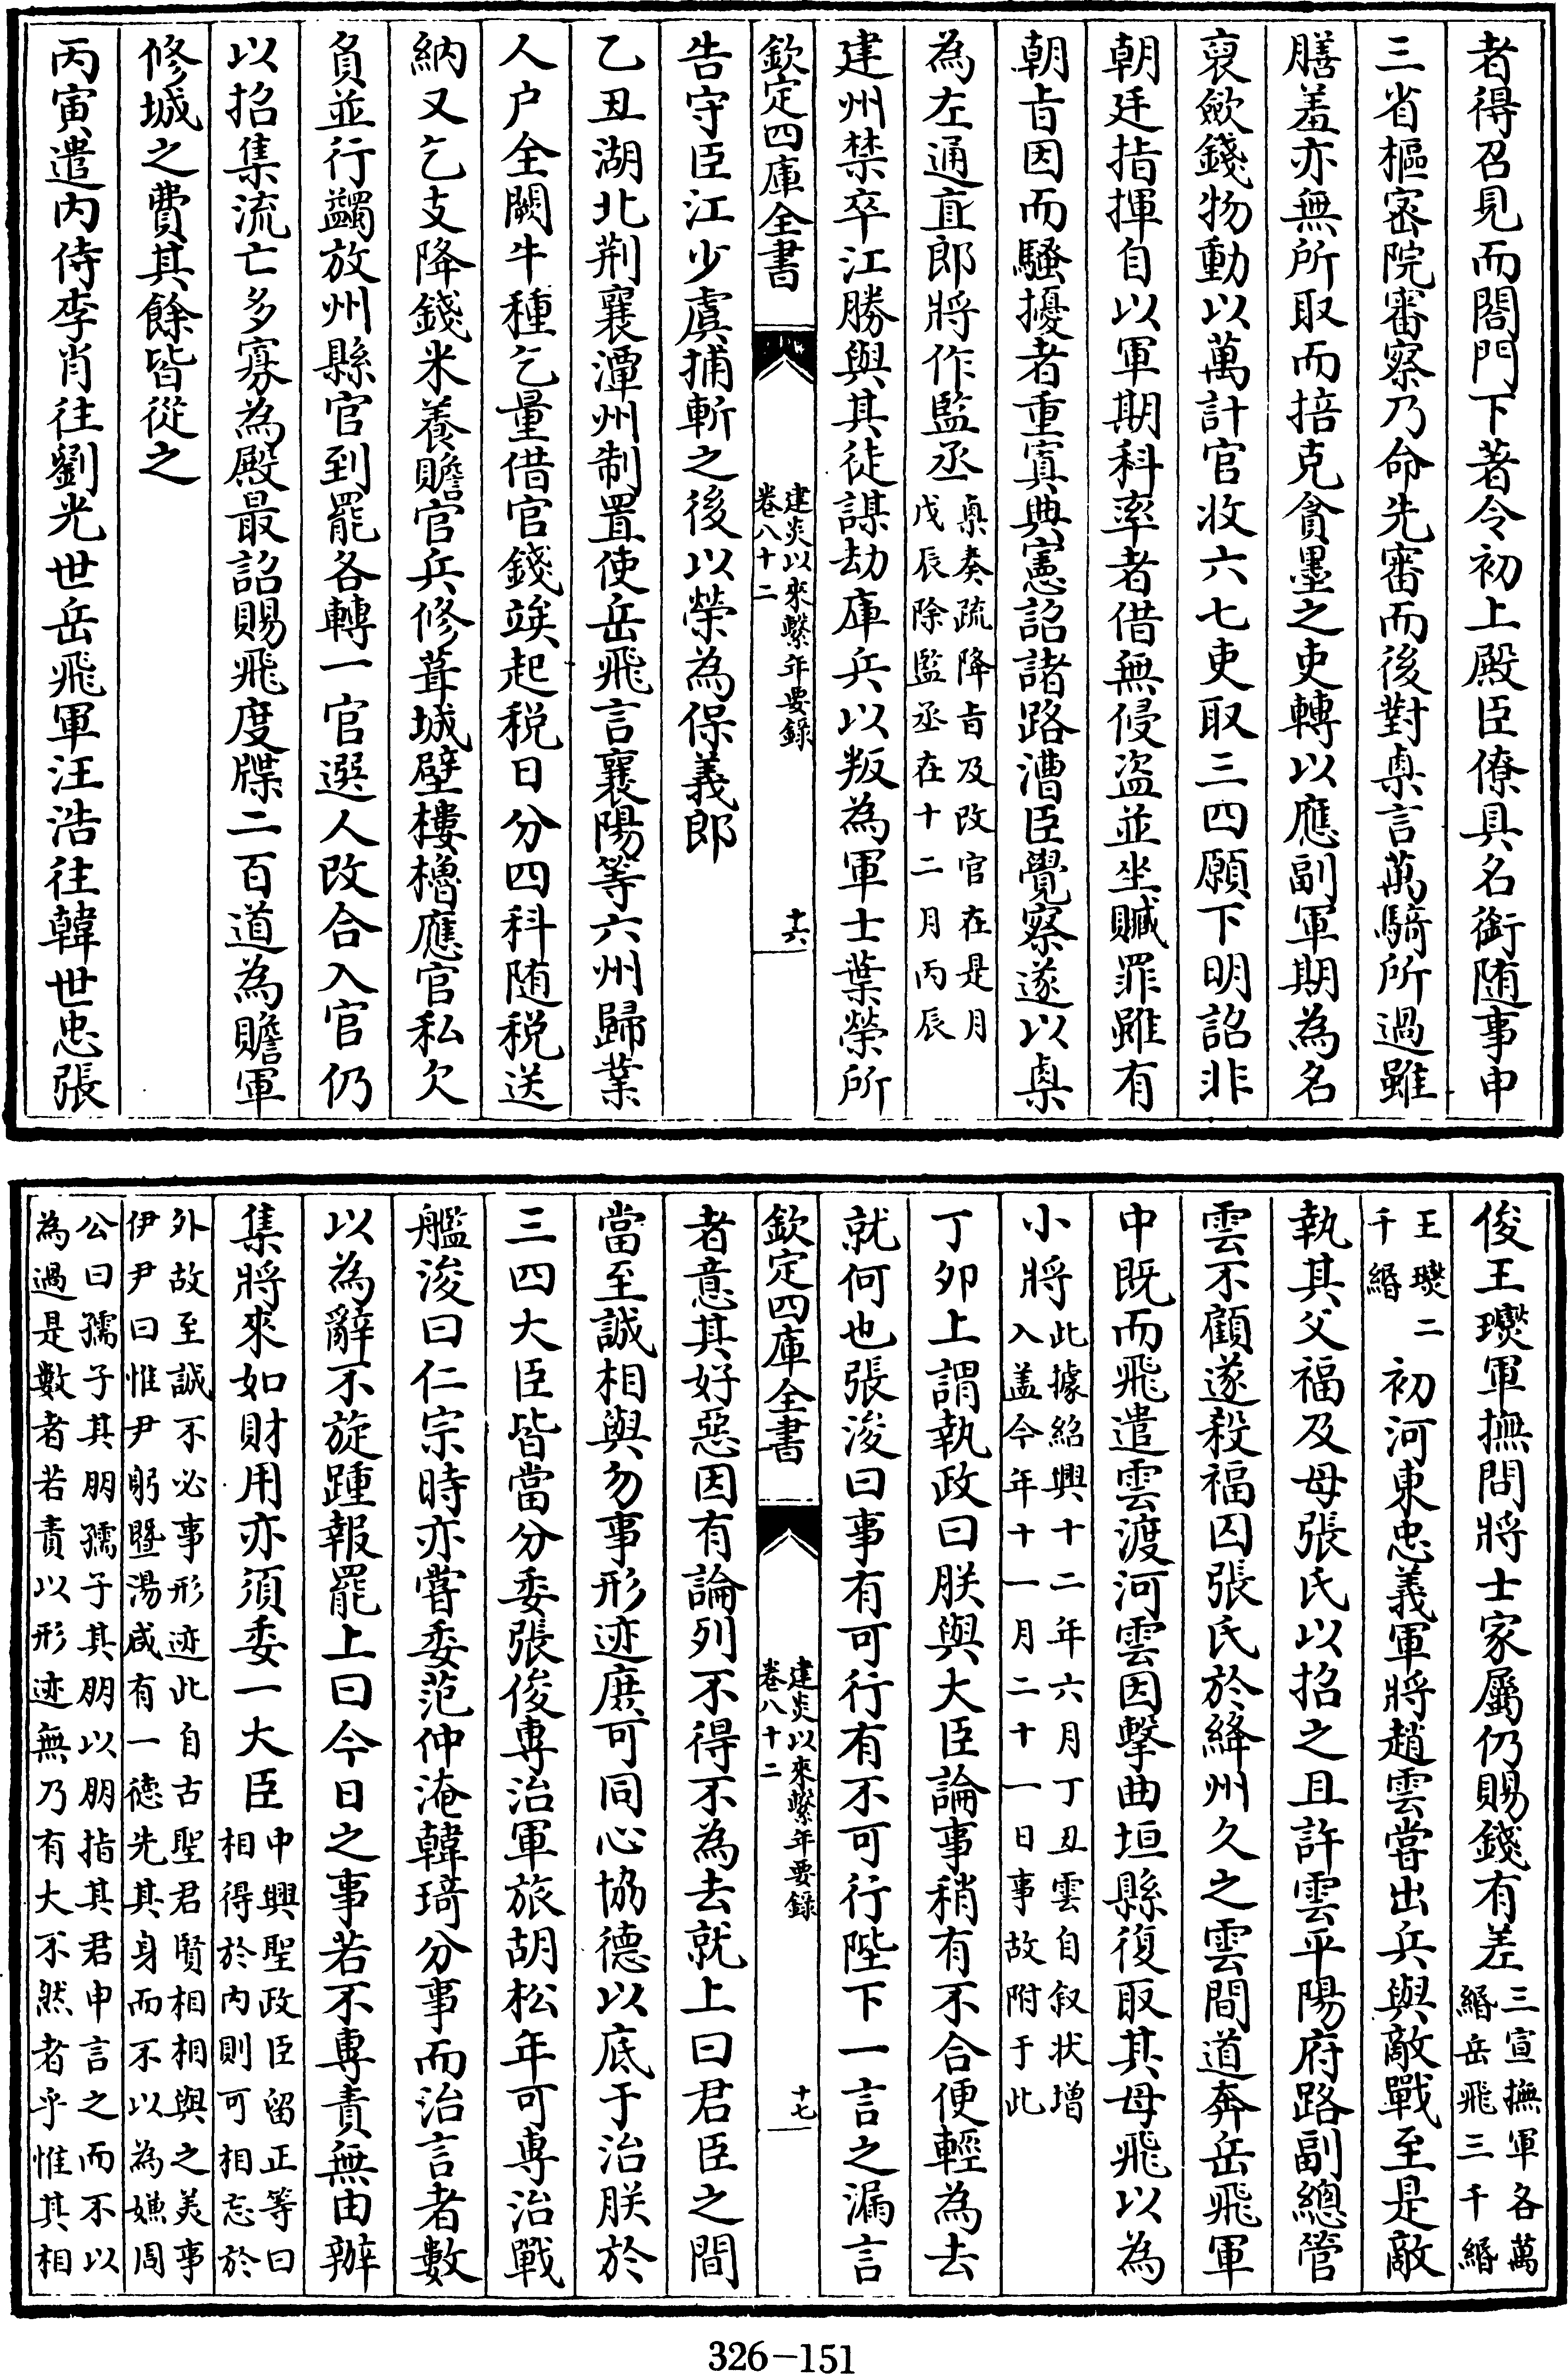 者得召見而閤門下著令初上殿臣僚具名銜随事申
三省樞密院審察乃命先審而後對㮚言萬騎所過雖
膳羞亦無所取而掊克貪墨之吏轉以應副軍期為名
裒斂錢物動以萬計官收六七吏取三四願下明詔非
朝廷指揮自以軍期科率者借無侵盗並坐贓罪雖有
朝㫖因而騷擾者重寘典憲詔諸路漕臣覺察遂以㮚
為左通直郎將作監丞㮚奏疏降㫖及改官在是月
戊辰除監丞在十二月丙辰
建州禁卒江勝與其徒謀劫庫兵以叛為軍士葉榮所
欽定四庫全書
建炎以來繫年要錄
卷八十二
十六
告守臣江少虞捕斬之後以榮為保義郎
乙丑湖北荆襄潭州制置使岳飛言襄陽等六州歸業
人户全闕牛種乞量借官錢竢起税日分四科随税送
納又乞支降錢米養贍官兵修葺城壁樓櫓應官私欠
負並行蠲放州縣官到罷各轉一官選人改合入官仍
以招集流亡多寡為殿最詔賜飛度牒二百道為贍軍
修城之費其餘皆從之
丙寅遣内侍李肖往劉光世岳飛軍汪浩往韓世忠張
俊王𤫉軍撫問將士家屬仍賜錢有差三宣撫軍各萬
緡岳飛三千緡
王𤫉二
千緡
初河東忠義軍將趙雲嘗出兵與敵戰至是敵
執其父福及母張氏以招之且許雲平陽府路副總管
雲不顧遂殺福囚張氏於絳州久之雲間道奔岳飛軍
中既而飛遣雲渡河雲因擊曲垣縣復取其母飛以為
小將此據紹興十二年六月丁丑雲自叙状增
入盖今年十一月二十一日事故附于此
丁夘上謂執政曰朕與大臣論事稍有不合便輕為去
就何也張浚曰事有可行有不可行陛下一言之漏言
欽定四庫全書
建炎以來繫年要錄
卷八十二
十七
者意其好惡因有論列不得不為去就上曰君臣之間
當至誠相與勿事形迹庶可同心協德以底于治朕於
三四大臣皆當分委張俊專治軍旅胡松年可專治戰
艦浚曰仁宗時亦嘗委范仲淹韓琦分事而治言者數
以為辭不旋踵報罷上曰今日之事若不專責無由辦
集將來如財用亦須委一大臣中興聖政臣留正等曰
相得於内則可相忘於
外故至誠不必事形迹此自古聖君賢相相與之美事
伊尹曰惟尹躬暨湯咸有一德先其身而不以為嫌周
公曰孺子其朋孺子其朋以朋指其君申言之而不以
為過是數者若責以形迹無乃有大不然者乎惟其相
326-151